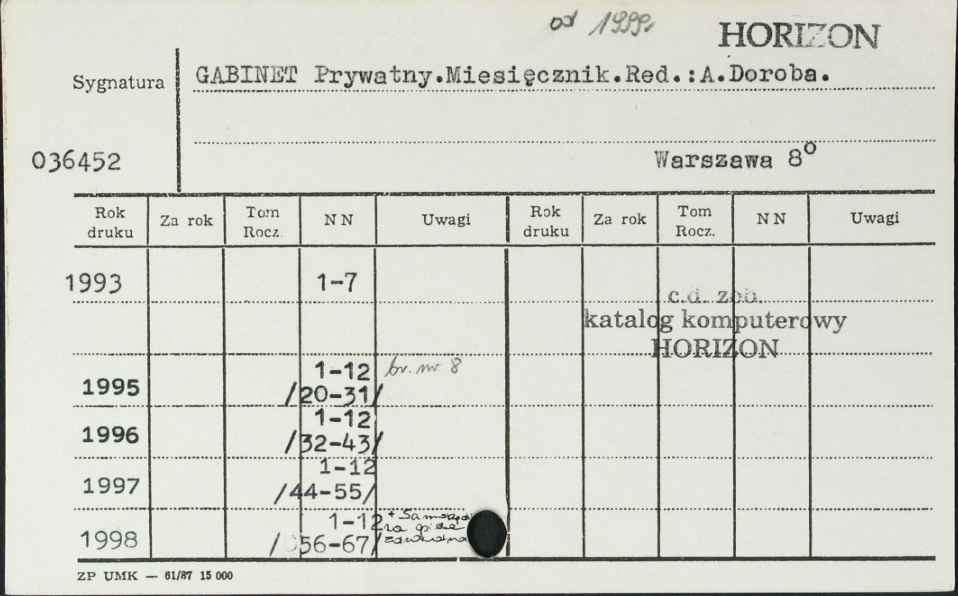 od 1999r
HORIZON
Sygnatura
GABINET Prywatny.Miesięcznik.Red.:A.Doroba.
036452
Warszawa 8°
Rok druku Za rok Tom Rocz. NN Uwagi Rok druku Za rok Tom Rocz. NN Uwagi
1993 1-7
c.d. zob.
katalog komputerowy
HORIZON
1995 1-12 br. nr 8
/20-31/
1996 1-12
/32-43/
1997 1-12
/44-55/
1998 1-12 +
/56-67/
ZP UMK — 61/87 15 000